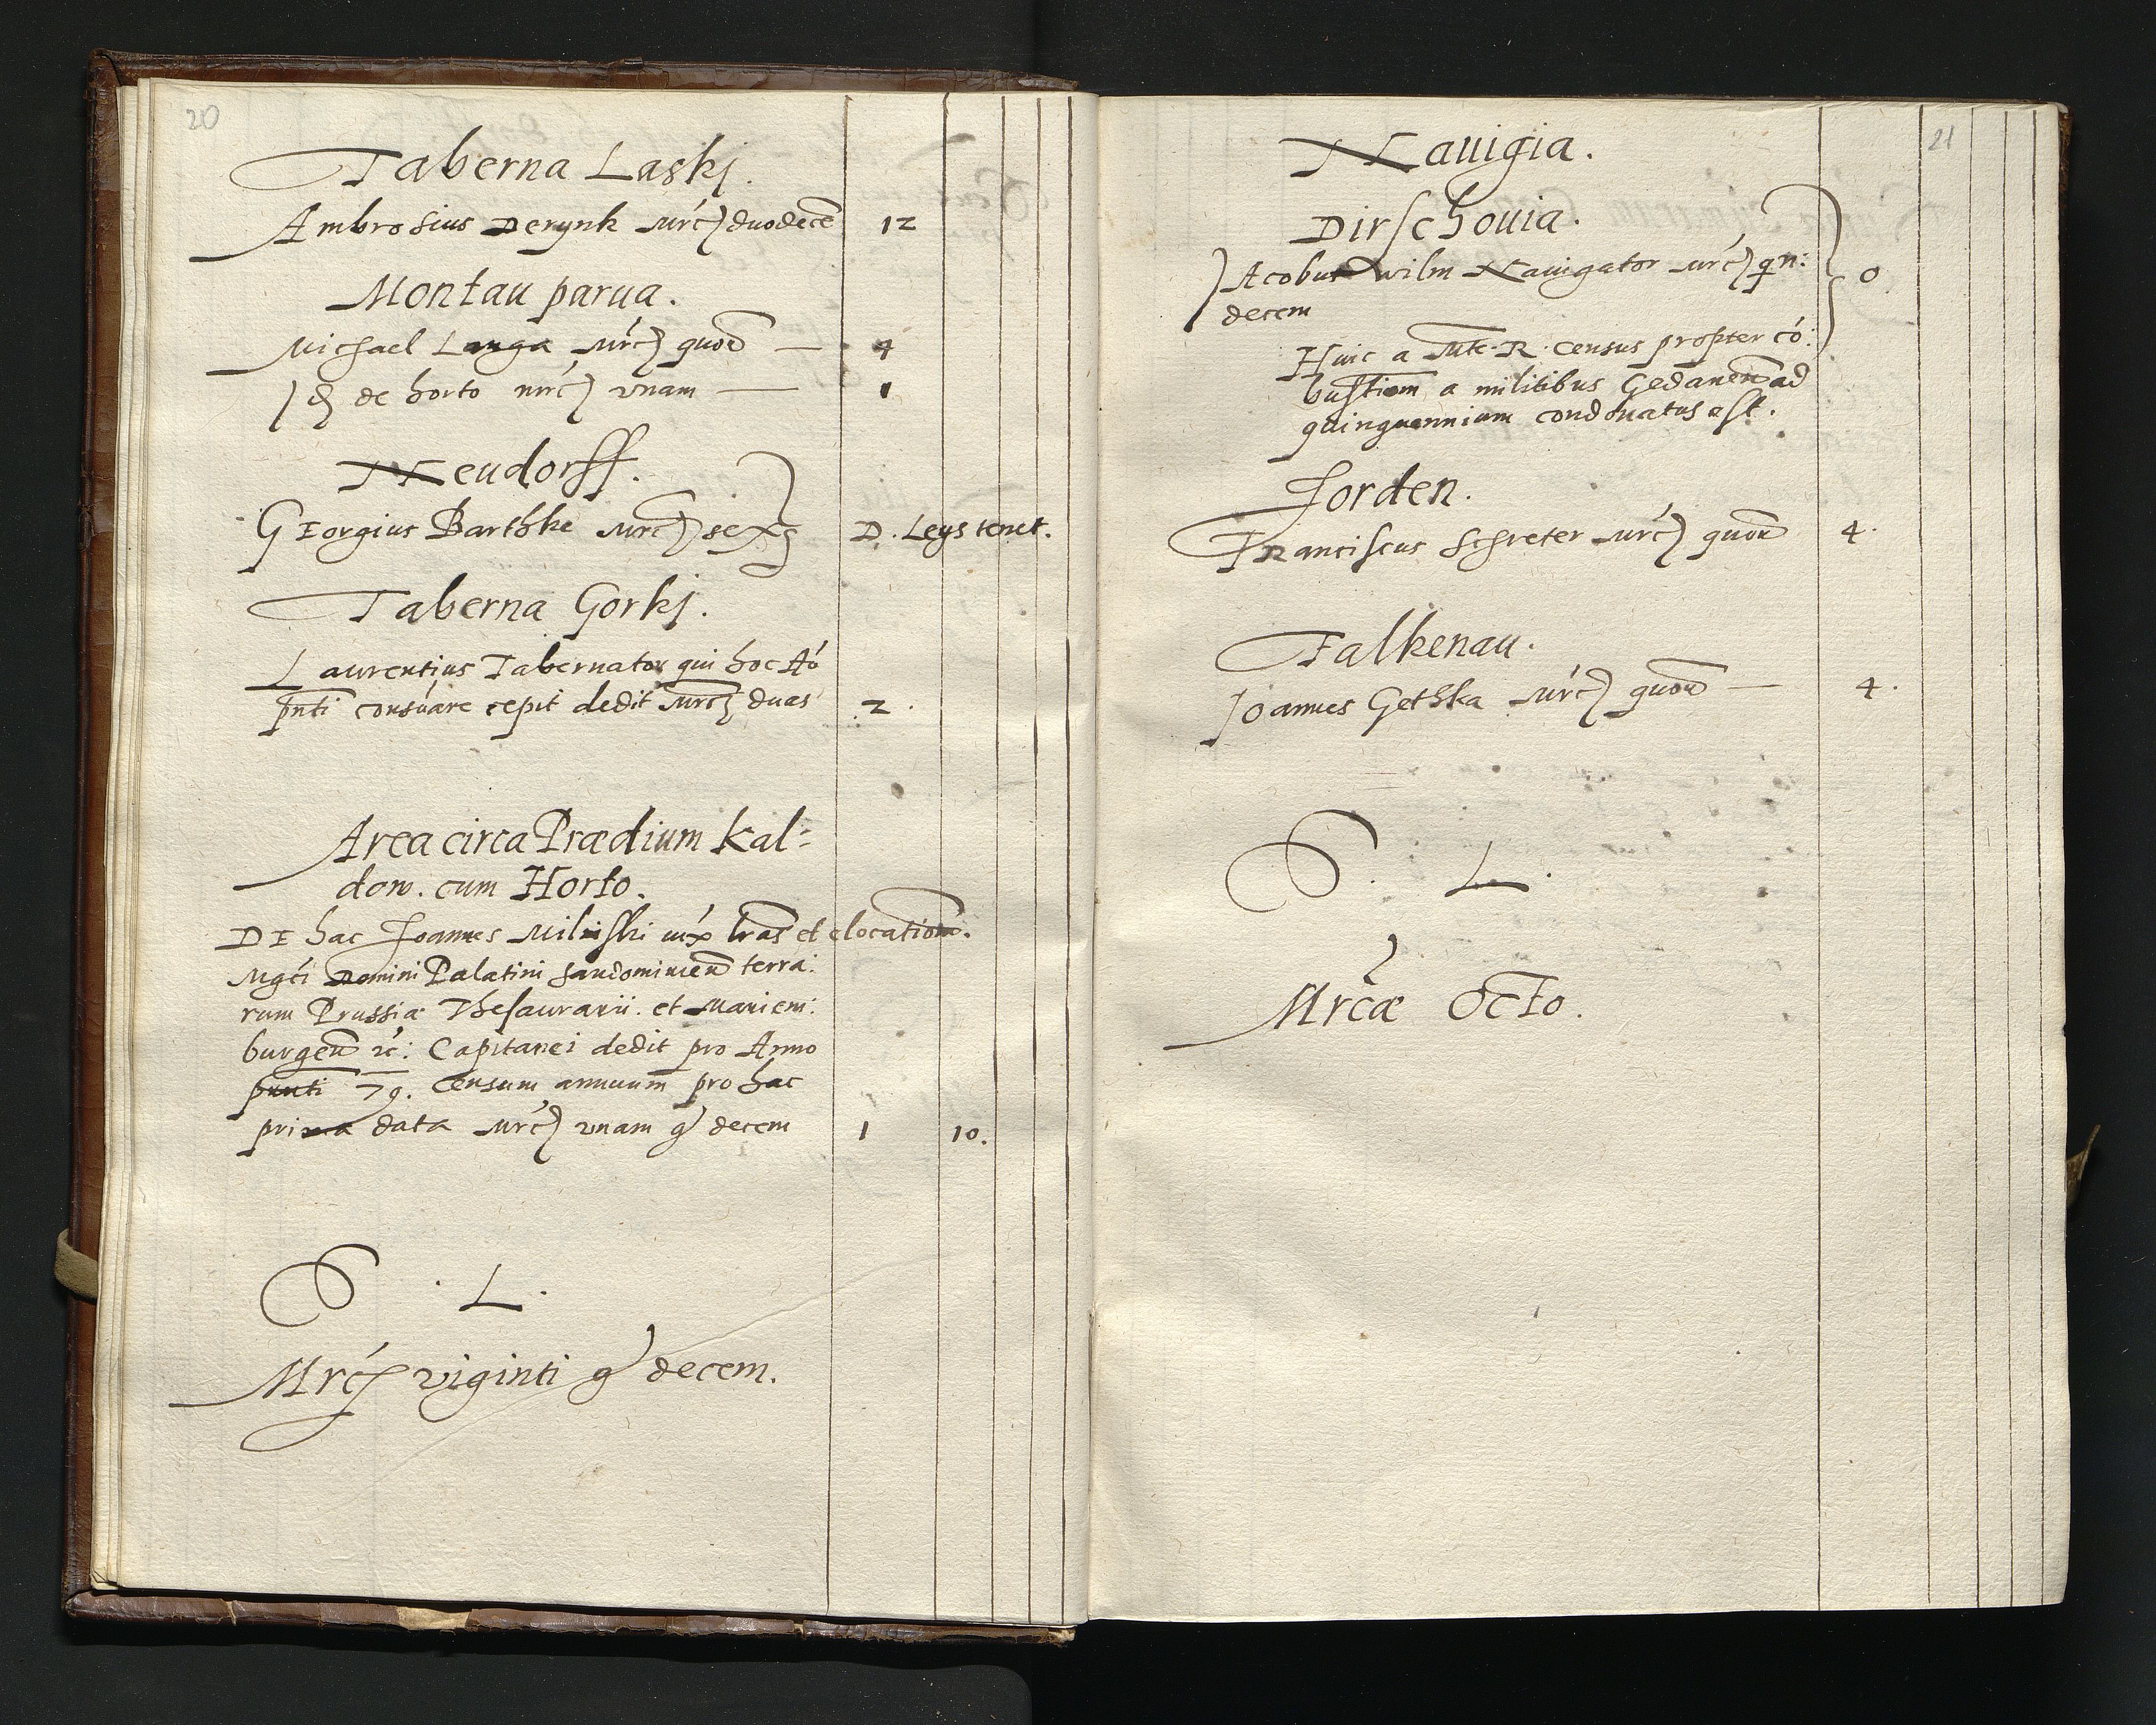 20
Taberna Laskj.
Ambrosius Derynk mrc) duodecē 12
Montau parua.
Michael Langa mrc) quou — 4
Id de horto mrc) vnam — 1
Neudorff.
GEorgius Barthke mrc) sex D. Leys tenet.
Taberna Gorkj.
Laurentius Tabernator qui hoc Aō
pn̄ti consuare cepit dedit mrc) duas 2.
Area circa Prædium Kal=
dow. cum Horto.
DE hac Joannes Milinski iux lrās et elocation̄.
Mgci Domini Palatini sandomirien̄ terra:
rum Prussiæ Thesaurarii. et Mariem:
burgen̄ zc: Capitanei dedit pro Anno
pn̄ti 79. Censum annuum pro hac
prima data mrc) vnam g decem 1 10.
L.
Mrc) viginti g decem.
21
Nauigia.
Dirschouia.
JAcobus wilm Nauigator mrc) qn:
decem 0
Huic a Mte. R. census propter cō:
bustiom̄ a militibus Gedanen̄ ad
quinquennium condonatus est.
Forden.
FRanciscus Schreter mrc) quou 4.
Falkenau.
Joannes Gethka mrc) quou — 4.
L.
Mrcæ Octo.